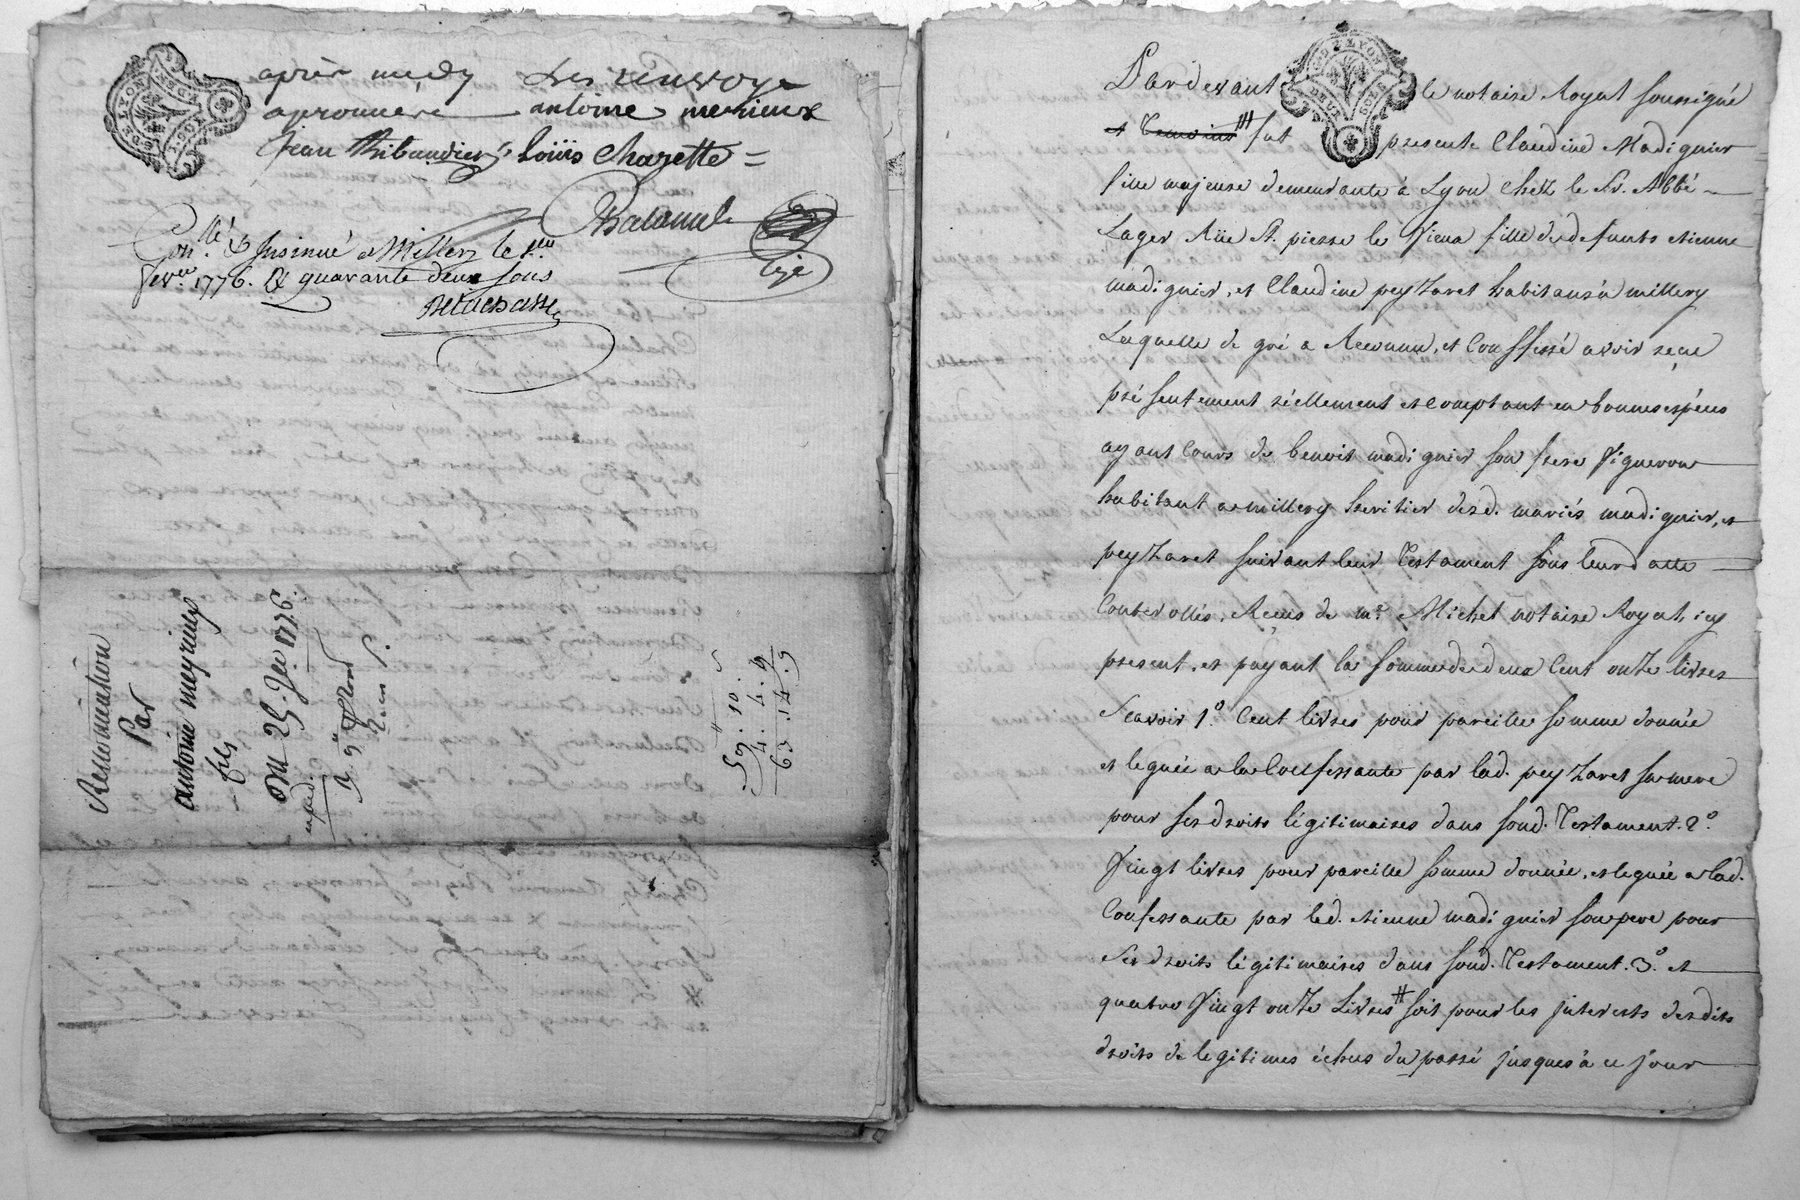 après midy les renvoye
apronuvés antoine merieux
Jean Thibaudier, Loüis Charette =
Con.llé & Insinué a Millery le 1.er
fevr. 1776. R quarante deux sous
Renomination
Par
antoine meyrieux
fils
Du 25. Jer 1776.
exped.
59. 10. 5
4. 4. 9
63. 14. 9
DE LYON
Pardevant le notaire Royal soussigné
et temoins fut presente Claudine Madignier
fille majeure demeurante à Lyon chez le Sr. Abbé
Lager Rüe St. pierre le Vieux fille de defunts etienne
madignier, et Claudine peyzaret habitans a millery
Laquelle de gré a Reconnu, et Confessé avoir reçue
présentement réellement et comptant en bonnes espéces
ayant Cours de benoit madignier son frere Vigneron
habitant a millery heritier desd. mariés madignier, et
peyzaret suivant leur Testament sous leur datte
Controllés, Reçus de me. Michel notaire Royal, icy
present, et payant la somme de deux Cent onze livres
Scavoir 1º. Cent livres pour pareille somme donnée
et leguée a la Confessante par lad. peyzaret sa mere
pour ses droits légitimaires dans sond. Testament. 2º.
Vingt livres pour pareille somme donnée, et leguée a lad.
Confessante par led. etienne madignier son pere pour
Ses droits légitimaires dans sond. Testament. 3º. et
quatre Vingt onze Livres # soit pour les interests desdits
droits de legitimes échus du passé jusques à ce jour